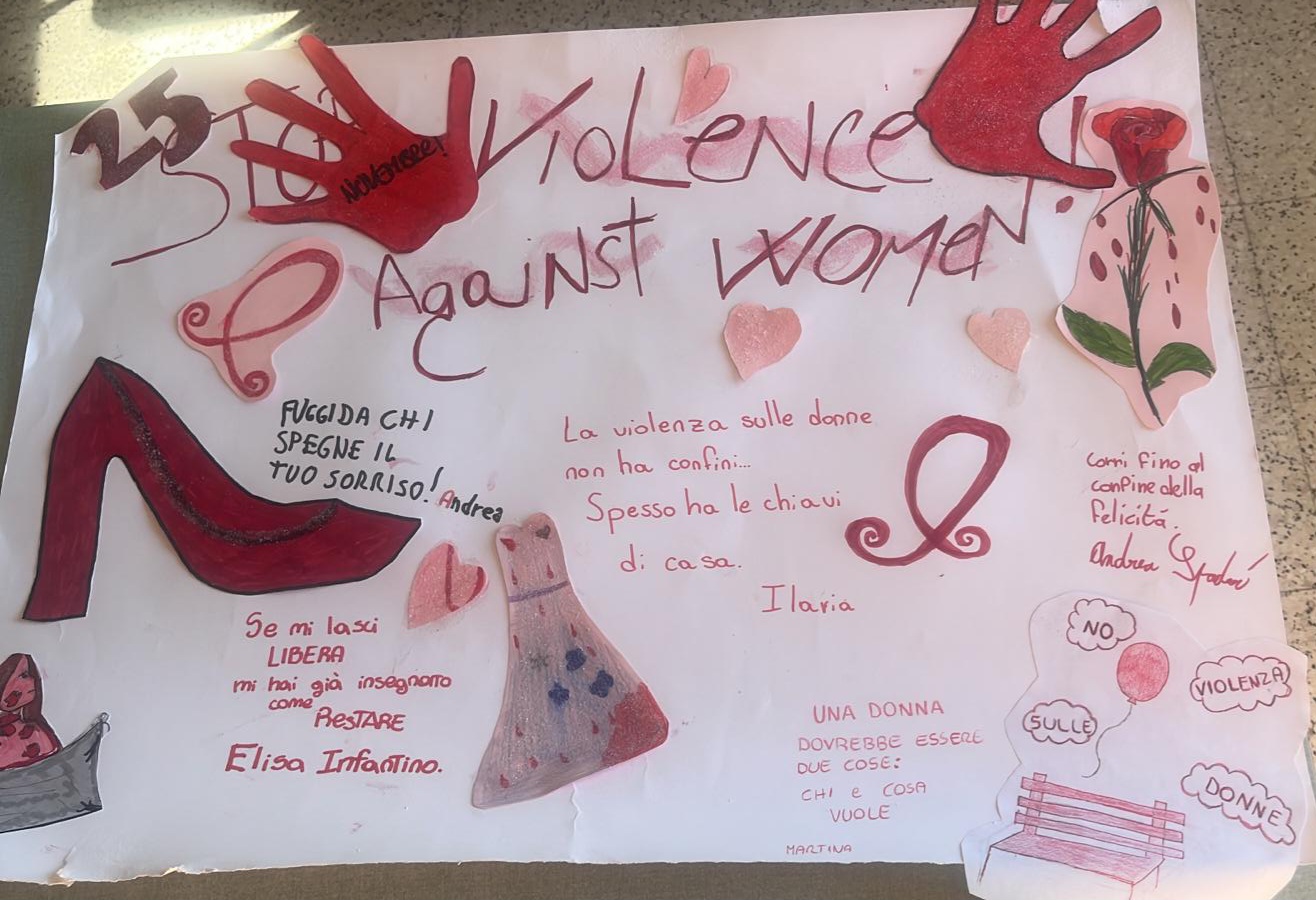 25
NOVEMBRE!
STOP VIOLENCE
AGAINST WOMEN
FUGGI DA CHI
SPEGNE IL
TUO SORRISO!
Andrea
La violenza sulle donne
non ha confini...
Spesso ha le chiavi
di casa.
Ilaria
Corri fino al
confine della
felicità.
Andrea
Se mi lasci
LIBERA
mi hai già insegnato
come
RESTARE
Elisa Infantino.
UNA DONNA
DOVREBBE ESSERE
DUE COSE:
CHI e COSA
VUOLE
MARTINA
NO
VIOLENZA
SULLE
DONNE